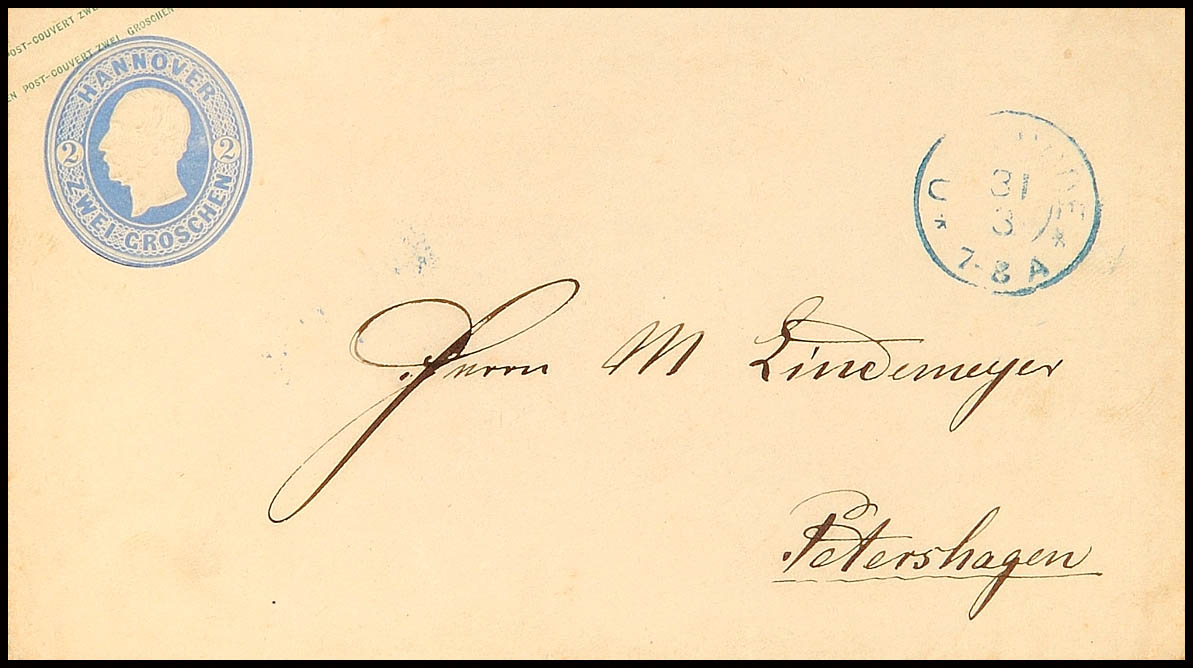 POST-COUVERT ZWEI
EN POST-COUVERT ZWEI GROSCHEN
HANNOVER
2 2
ZWEI GROSCHEN
31
3
7-8 A
Herrn M Lindemeyer
Petershagen